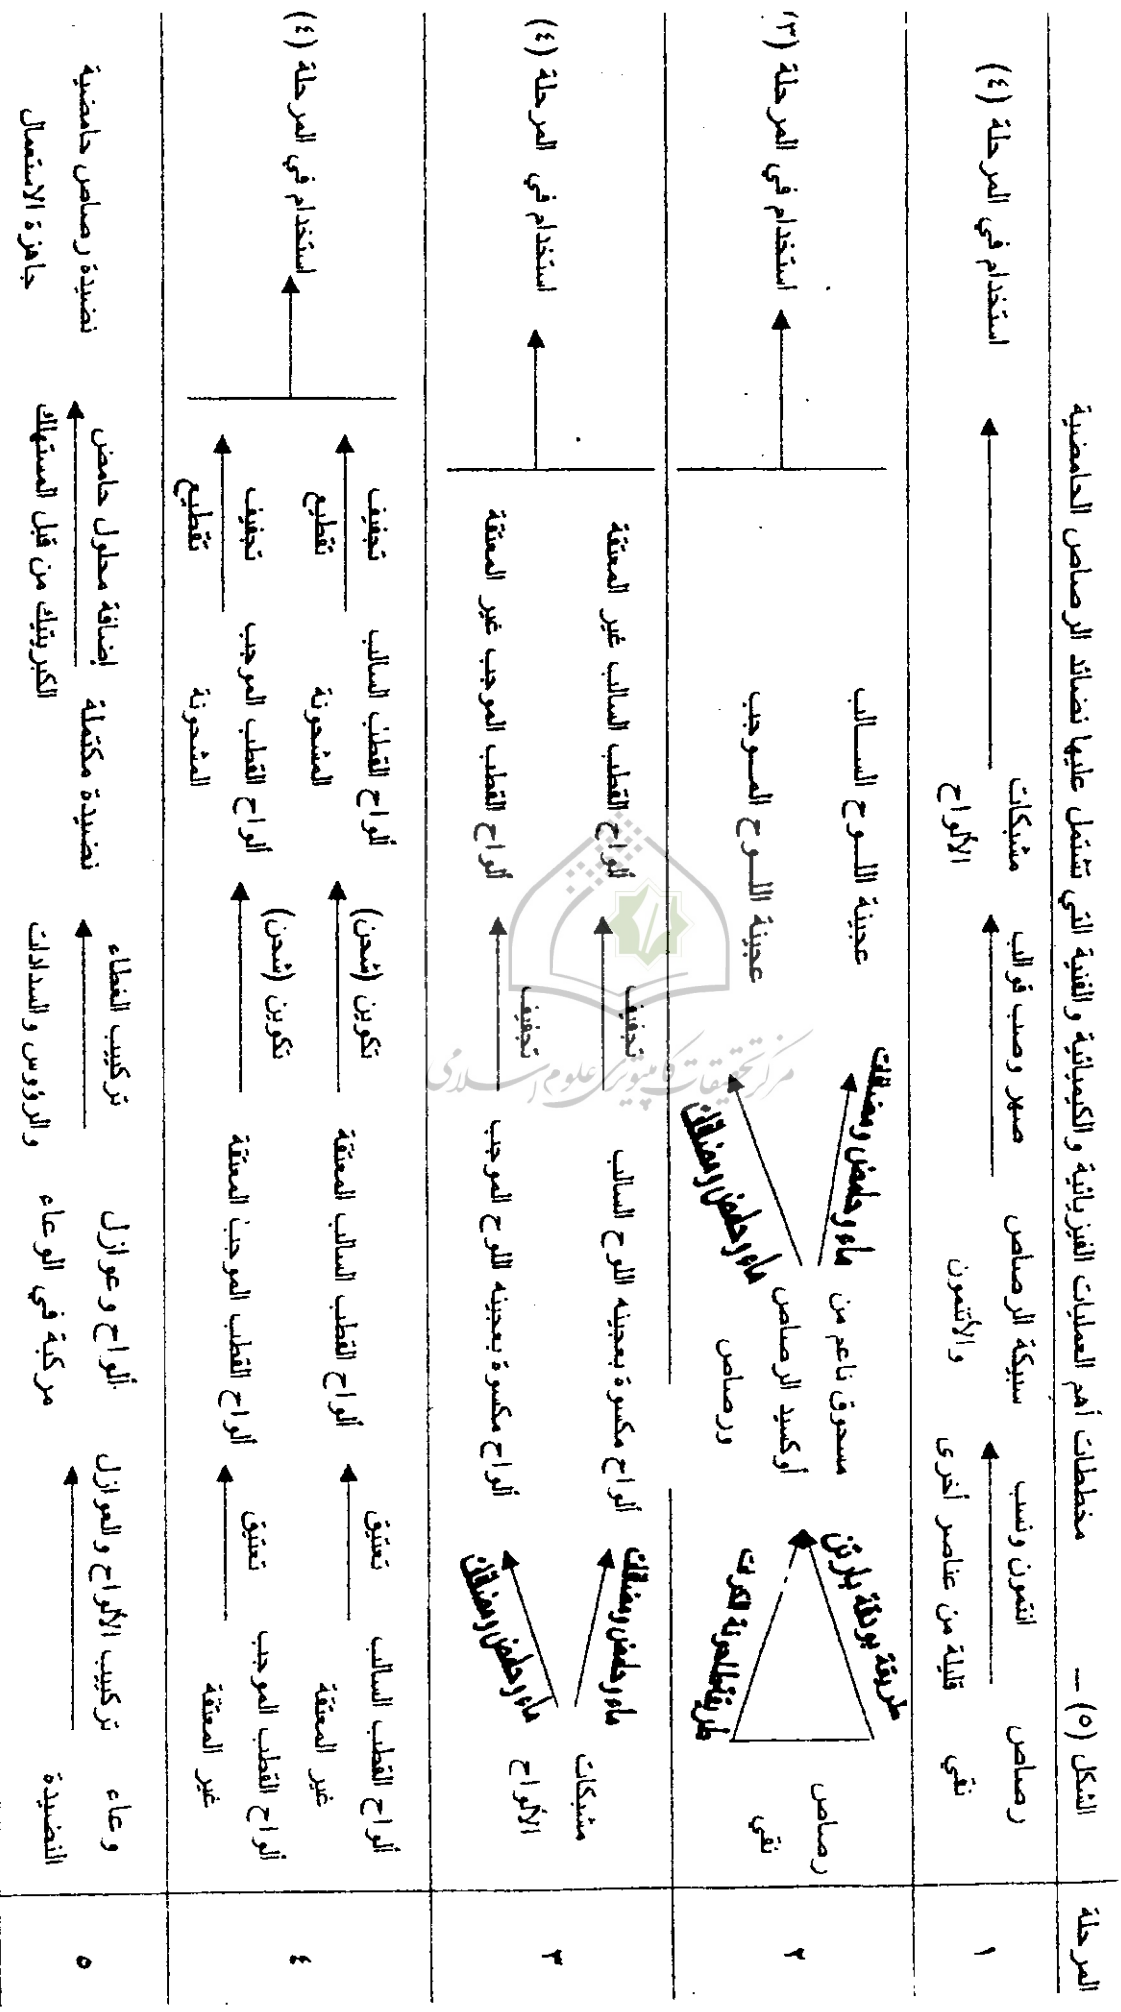 المرحلة
الشكل (٥) – مخططات أهم العمليات الفيزيائية والكيميائية والفنية التي تشتمل عليها نضائد الرصاص الحامضية
١
رصاص
نقي
انتمون ونسب
قليلة من عناصر أخرى
سبيكة الرصاص
والأنتمون
صهر وصب قوالب
مشبكات
الألواح
استخدام في المرحلة (٤)
٢
رصاص
نقي
طريقة بوتقة بارتن
طريقة طاحونة الكرات
مسحوق ناعم من
أوكسيد الرصاص
ورصاص
ماء وحامض ومضافات
ماء وحامض ومضافات
عجينة اللوح السالب
عجينة اللوح الموجب
استخدام في المرحلة (٣)
٣
مشبكات
الألواح
ماء وحامض ومضافات
ماء وحامض ومضافات
ألواح مكسوة بعجينه اللوح السالب
ألواح مكسوة بعجينه اللوح الموجب
تجفيف
تجفيف
ألواح القطب السالب غير المعتقة
ألواح القطب الموجب غير المعتقة
استخدام في المرحلة (٤)
٤
ألواح القطب السالب
غير المعتقة
ألواح القطب الموجب
غير المعتقة
تعتيق
تعتيق
ألواح القطب السالب المعتقة
ألواح القطب الموجب المعتقة
تكوين (شحن)
تكوين (شحن)
ألواح القطب السالب
المشحونة
ألواح القطب الموجب
المشحونة
تجفيف
تقطيع
تجفيف
تقطيع
استخدام في المرحلة (٤)
٥
وعاء
النضيدة
تركيب الألواح والعوازل
ألواح وعوازل
مركبة في الوعاء
تركيب الغطاء
والرؤوس والسدادات
نضيدة مكتملة
إضافة محلول حامض
الكبريتيك من قبل المستهلك
نضيدة رصاص حامضية
جاهزة الاستعمال
مرکز تحقیقات کامپیوتری علوم اسلامی